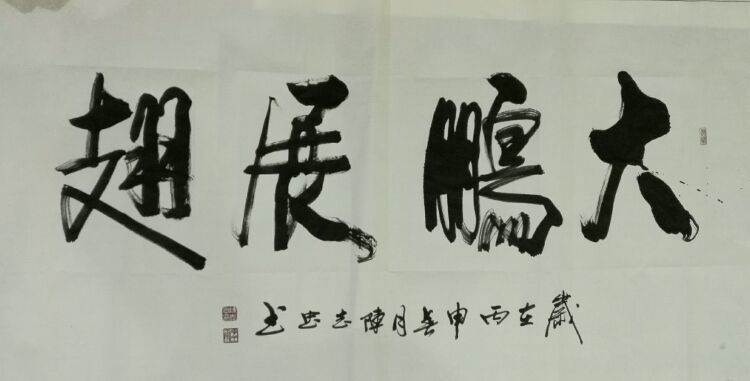 大鵬展翅
歲在丙申春月陳志忠书